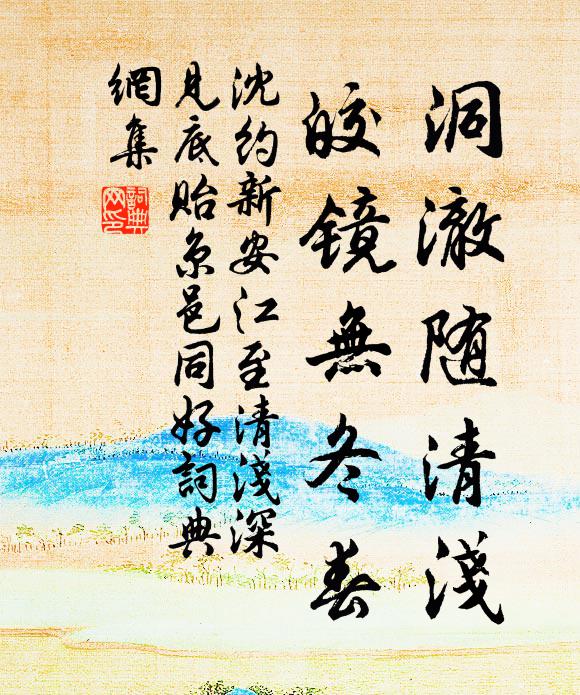 洞澈随清淺
皎鏡無冬春
沈約新安江至清淺深
見底貽京邑同好詞典
網集
詞典網印